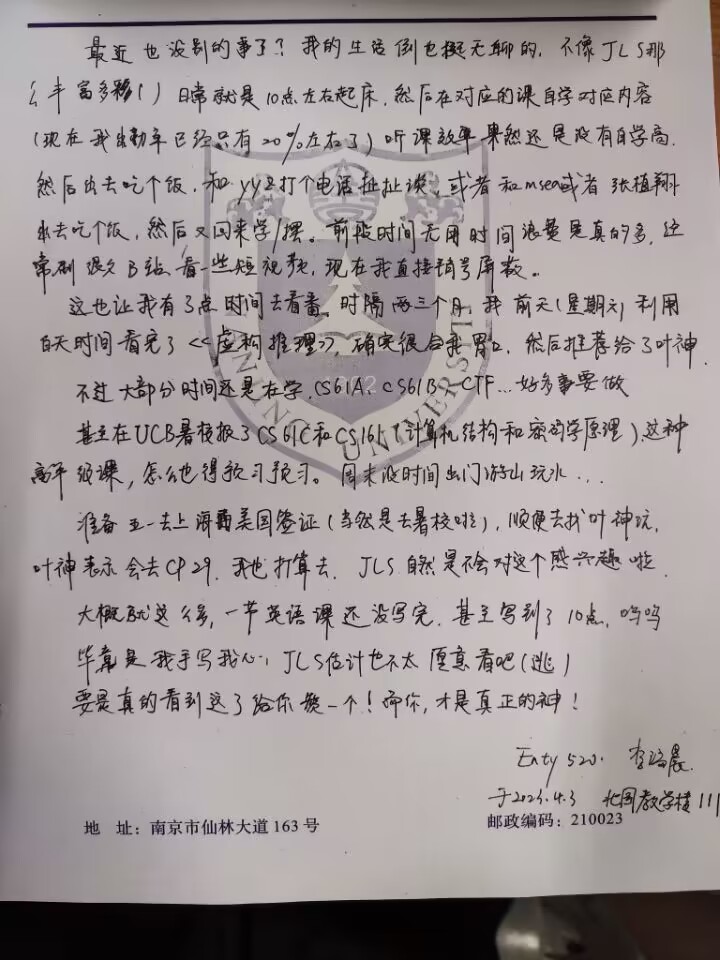 最近也没别的事了？我的生活倒也挺无聊的，不像JLS那
么丰富多彩（）日常就是10点左右起床，然后在对应的课自学对应内容
（现在我出勤率已经只有20%左右了）听课效率果然还是没有自学高，
然后出去吃个饭，和yyz打个电话扯扯谈，或者和msea或者张植翔
出去吃个饭，然后又回来学/摆。前段时间无用时间浪费是真的多，经
常刷很久B站，看一些短视频，现在我直接销号屏蔽。
这也让我有了点时间去看番。时隔两三个月，我前天（星期六）利用
白天时间看完了《虚构推理》，确实很合我胃口，然后推荐给了叶神
不过大部分时间还是在学，CS61A、CS61B、CTF...好多事要做
甚至在UCB暑校报了CS61C和CS161（计算机结构和密码学原理），这种
高年级课，怎么也得预习预习。周末没时间出门游山玩水...
准备五一去上海面美国签证（当然是去暑校啦），顺便去找叶神玩，
叶神表示会去CP29，我也打算去，JLS自然是不会对这个感兴趣啦
大概就这么多，一节英语课还没写完，甚至写到了10点，呜呜
毕竟是我手写我心，JLS估计也不太愿意看吧（逃）
要是真的看到这了给你 一个！ 你，才是真正的神！
Enty 520.
4.3 北园教学楼111
地 址：南京市仙林大道163号
邮政编码：210023
UNIVERSIT